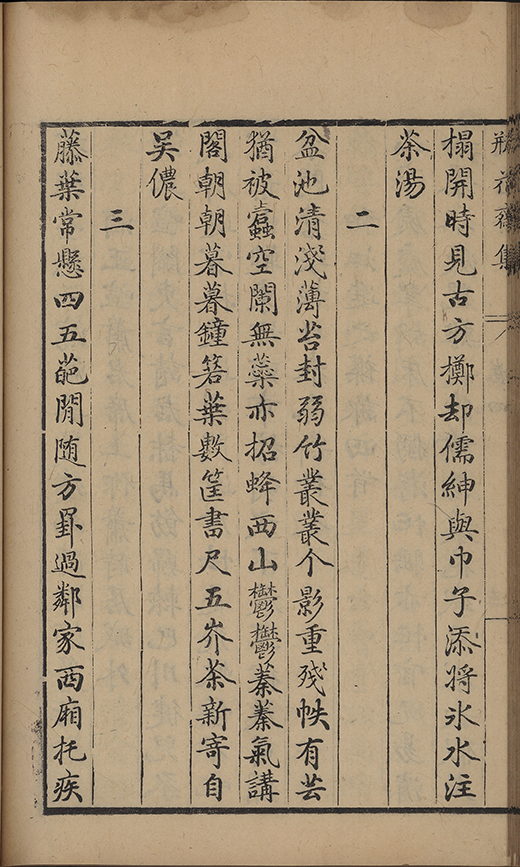 瓶花齋集
榻開時見古方擲却儒紳與巾子添將氷水注
茶湯
二
盆池清淺薄苔封弱竹叢叢个影重殘帙有芸
猶被蠹空闌無蘂亦招蜂西山鬱鬱蓁蓁氣講
閣朝朝暮暮鐘箬葉數筐書尺五岕茶新寄自
吴儂
三
藤葉常懸四五葩閒随方罫過鄰家西廂托疾